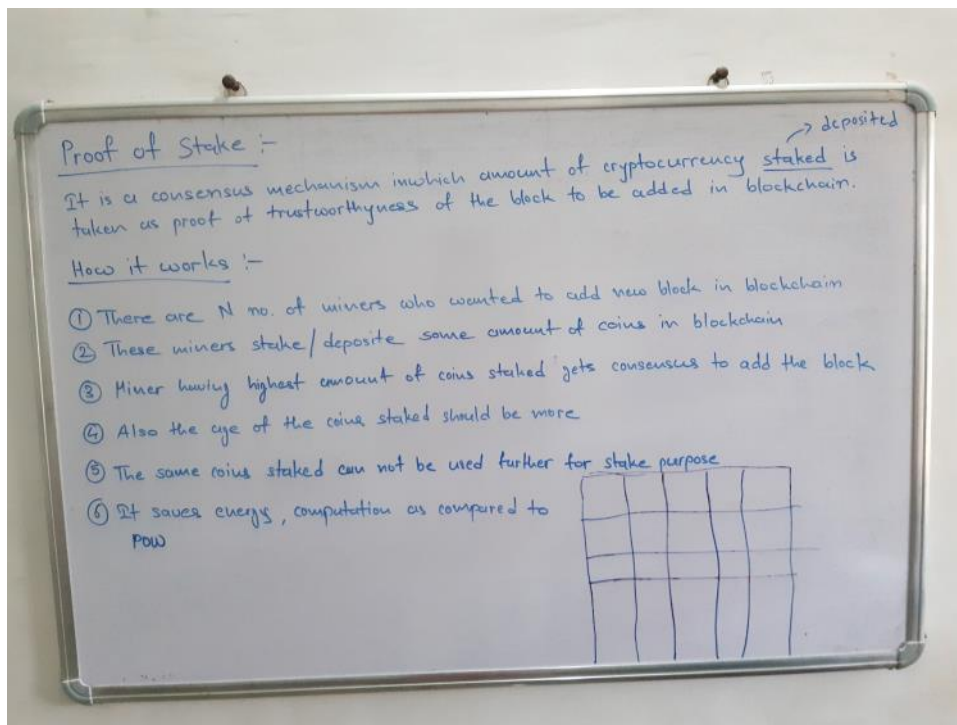 Proof of Stake :-
deposited
It is a consensus mechanism inwhich amount of cryptocurrency staked is
taken as proof of trustworthyness of the block to be added in blockchain.
How it works :-
① There are N no. of miners who wanted to add new block in blockchain
② These miners stake/deposite some amount of coins in blockchain
③ Miner having highest amount of coins staked gets consensus to add the block
④ Also the age of the coins staked should be more
⑤ The same coins staked can not be used further for stake purpose
⑥ It saves energy, computation as compared to
POW